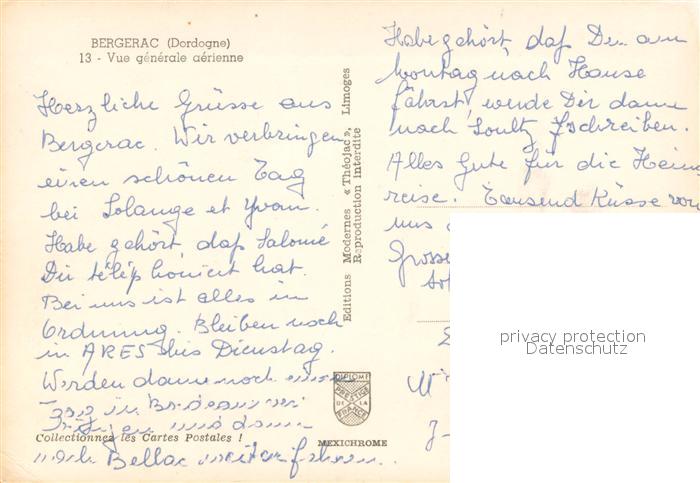 BERGERAC (Dordogne)
13 - Vue générale aérienne
Herzliche Grüsse aus
Bergerac. Wir verbringen
einen schönen Tag
bei Solange et Yvan.
Habe gehört daß Salomé
Dir téléphoniert hat.
Bei uns ist alles in
Ordnung. Bleiben noch
in ARES bis Dienstag.
Werden dann noch
Tag in Bordeaux
und dann
Collectionnez les Cartes Postales !
nach Bellac weiterfahren.
Editions Modernes « Théojac », Limoges
Reproduction interdite
DIPLOME
PRESTIGE
DE LA
FRANCE
MEXICHROME
Habe gehört, daß Du am
Montag nach Hause
fährst, werde Dir dann
nach Soultz schreiben.
Alles Gute für die Heim
reise. Tausend Küsse von
uns
Grosse
privacy protection
Datenschutz